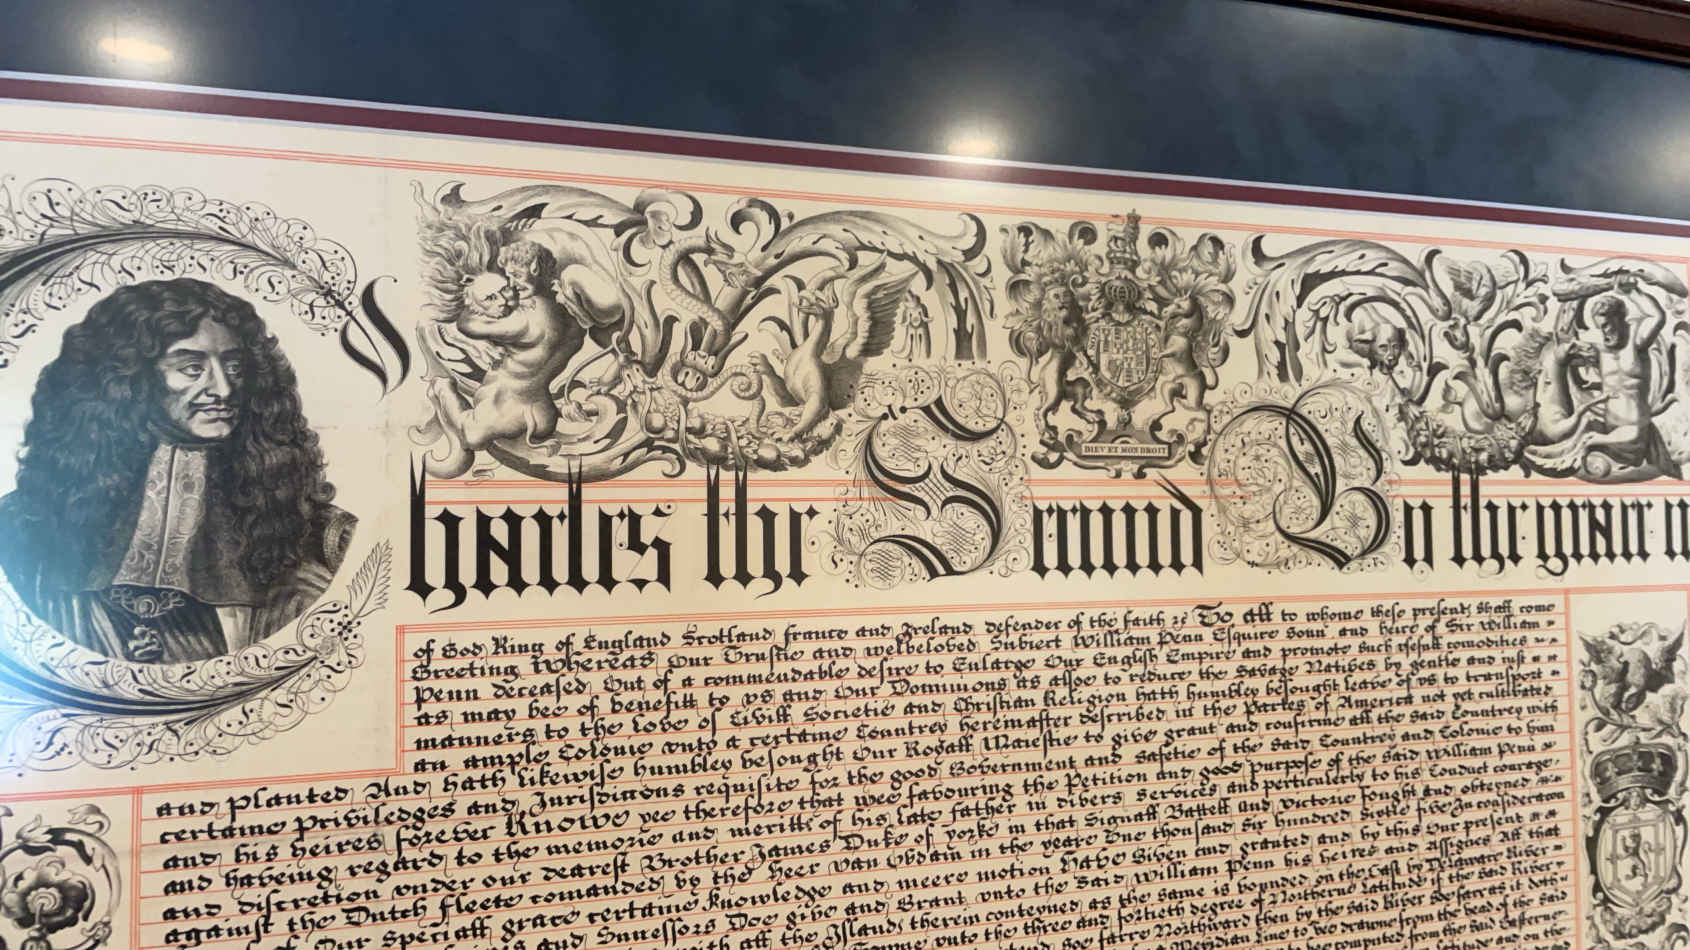 DIEV ET MON DROIT
Charles the Second By the grace
of God King of England Scotland france and Ireland defender of the faith &c To all to whome these presents shall come
Greeting Whereas Our Trustie and welbeloved Subiect William Penn Esquire sonn and heire of Sir William
Penn deceased Out of a commendable desire to Enlarge Our English Empire and promote such usefull comodities
as may bee of benefitt to us and Our Dominions as alsoe to reduce the Savage Natives by gentle and iust
manners to the love of Civill Societie and Christian Religion hath humbley besought leave of us to transport
an ample Colonie unto a certaine Countrey hereinafter described in the Partes of America not yet cultivated
and planted And hath likewise humbley besought Our Royall Maiestie to give grant and confirme all the said Countrey with
certaine priviledges and Jurisdiccons requisite for the good Government and safetie of the said Countrey and Colonie to him
and his heires forever Knowe yee therefore that wee favouring the Petition and good purpose of the said William Penn
and haveing regard to the memorie and meritts of his late father in divers services and perticulerly to his Conduct courage
and discretion under our dearest Brother James Duke of yorke in that Signall Battell and victorie fought and obteyned
against the Dutch fleete comanded by the Heer van Opdam in the yeare One thousand six hundred sixtie five In consideracon
of Our Speciall grace certaine knowledge and meere motion Have Given and granted and by this Our present
and Successors Doe give and Grant unto the said William Penn his heires and Assignes All that
with all the Islands therein conteyned as the same is bounded on the East by Delaware River
Towne unto the three and fortieth degree of Northerne Latitude if the said River
soe farre Northward then by the said River soe farr as it doth
Meridian Line to bee drawne from the head of the said
bee computed from the said Easterne
and on the